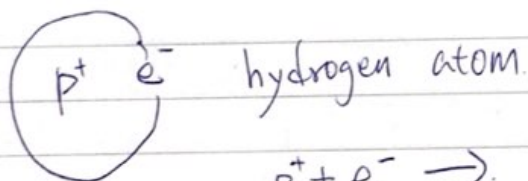 p⁺ e⁻ hydrogen atom.
p⁺ + e⁻ →